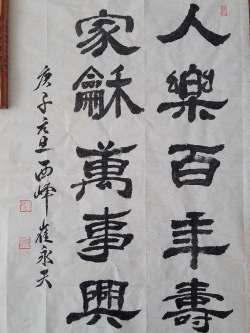 人樂百年壽
家龢萬事興
庚子元旦西峰崔永天